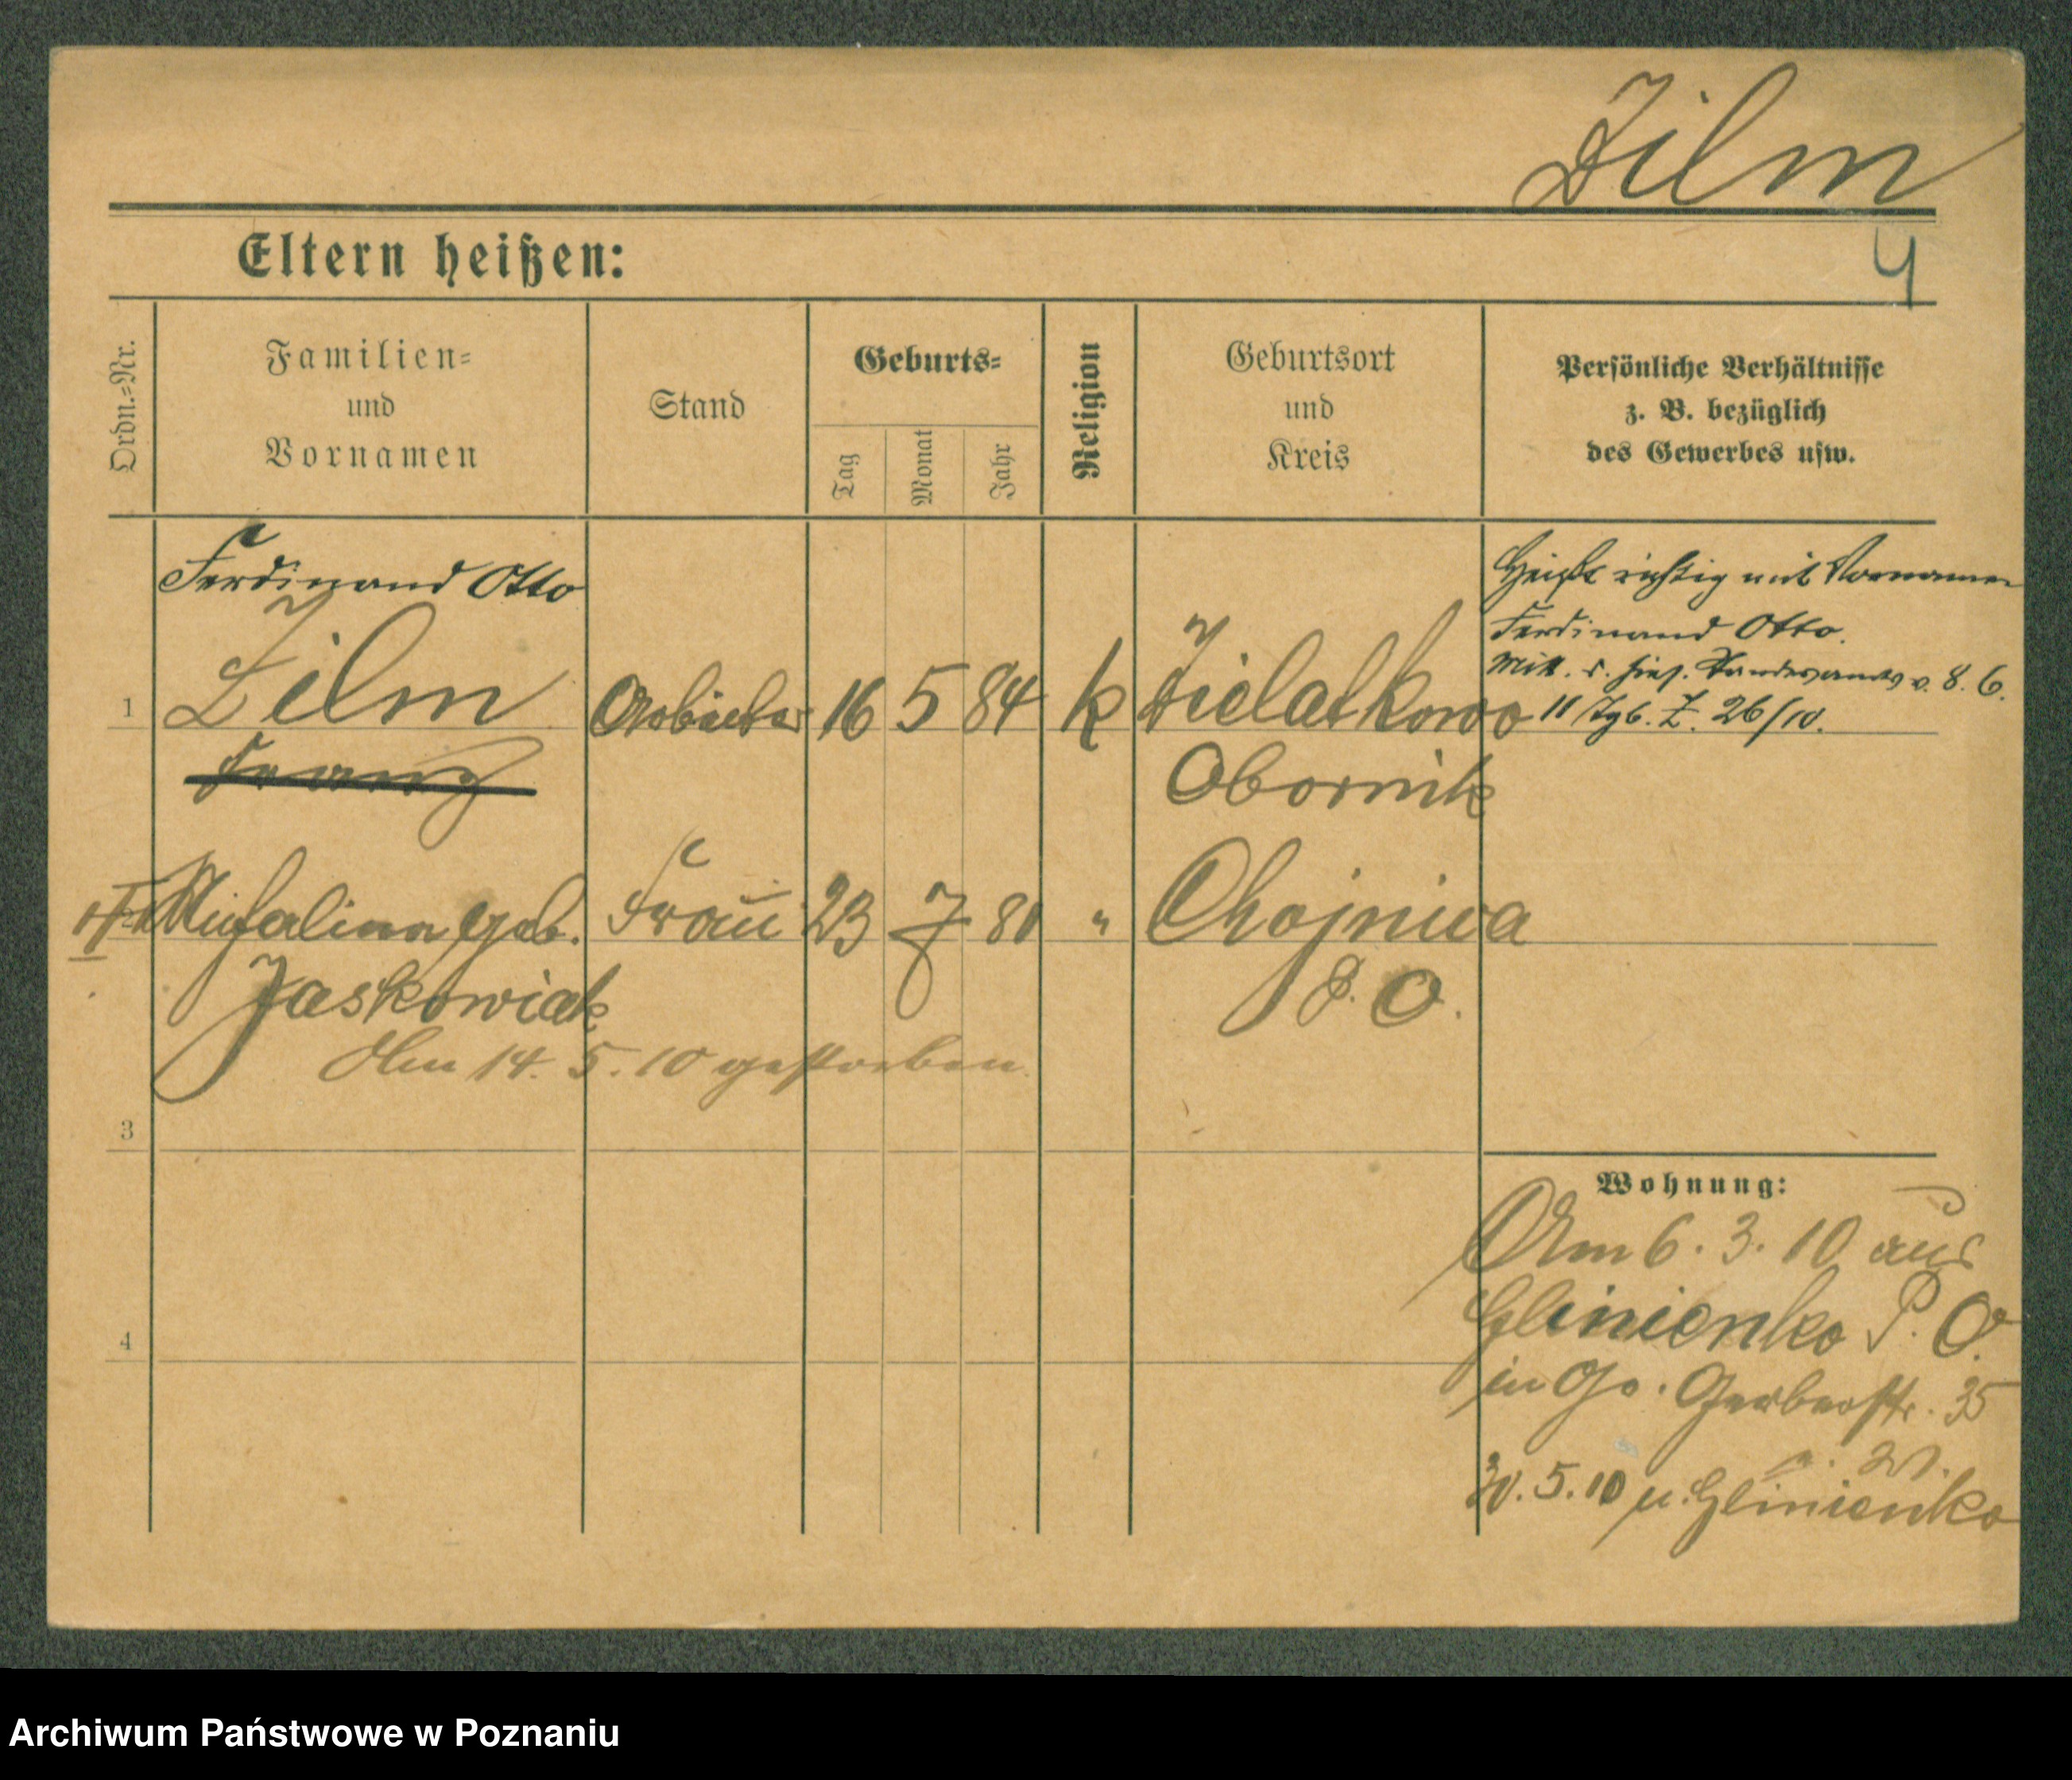 Zilm
4
Eltern heißen:
Ordn.=Nr.
Familien=
und
Vornamen
Stand
Geburts=
Tag
Monat
Jahr
Religion
Geburtsort
und
Kreis
Persönliche Verhältnisse
z. B. bezüglich
des Gewerbes usw.
Ferdinand Otto
Heißt richtig mit Vornamen
Ferdinand Otto.
Mitt. d. hies. Standesamts v. 8. 6.
11 Tgb. Z. 26/10.
1 Zilm Arbeiter 16 5 84 k Zielatkowo
Franz
Obornik
Michalina geb. Frau 23 7 80 " Chojnica
Jaskowiak
P. O.
Am 14. 5. 10 gestorben.
3
Wohnung:
Am 6. 3. 10 aus
Glinienko P. O.
in Go. Gerberstr. 35
4
30. 5. 10 n. Glinienko
Archiwum Państwowe w Poznaniu